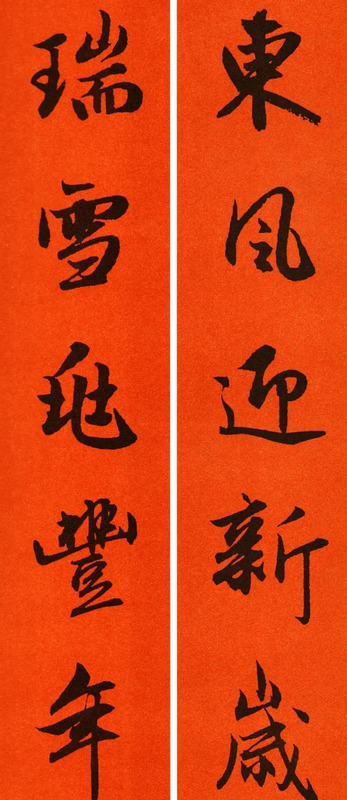 東風迎新歲
瑞雪兆豐年